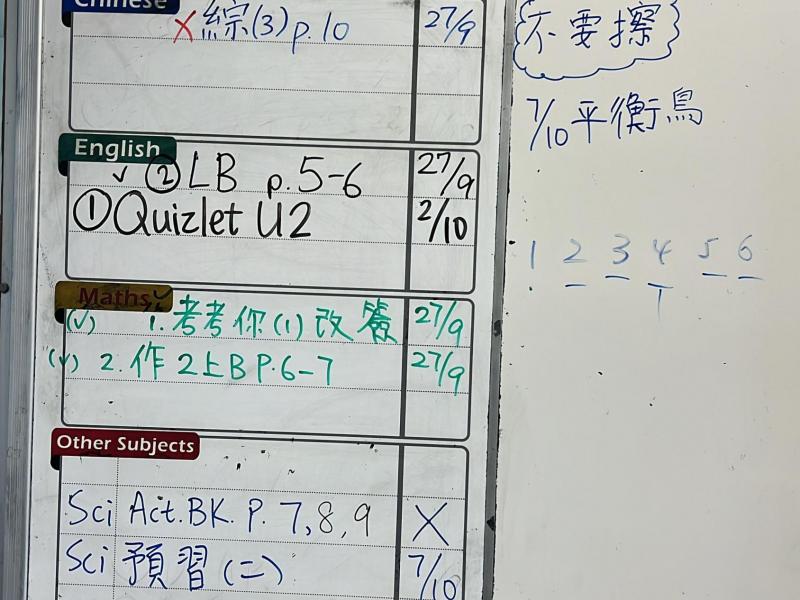 Chinese
×綜(3)p.10 27/9
English
✓ ②LB p.5-6 27/9
①Quizlet U2 2/10
Maths✓
(✓) 1.考考你(1)改簽 27/9
(✓) 2.作2上B P.6-7 27/9
Other Subjects
Sci Act.BK. P. 7,8,9 ×
Sci 預習(二) 7/10
不要擦
7/10平衡鳥
1 2 3 4 5 6